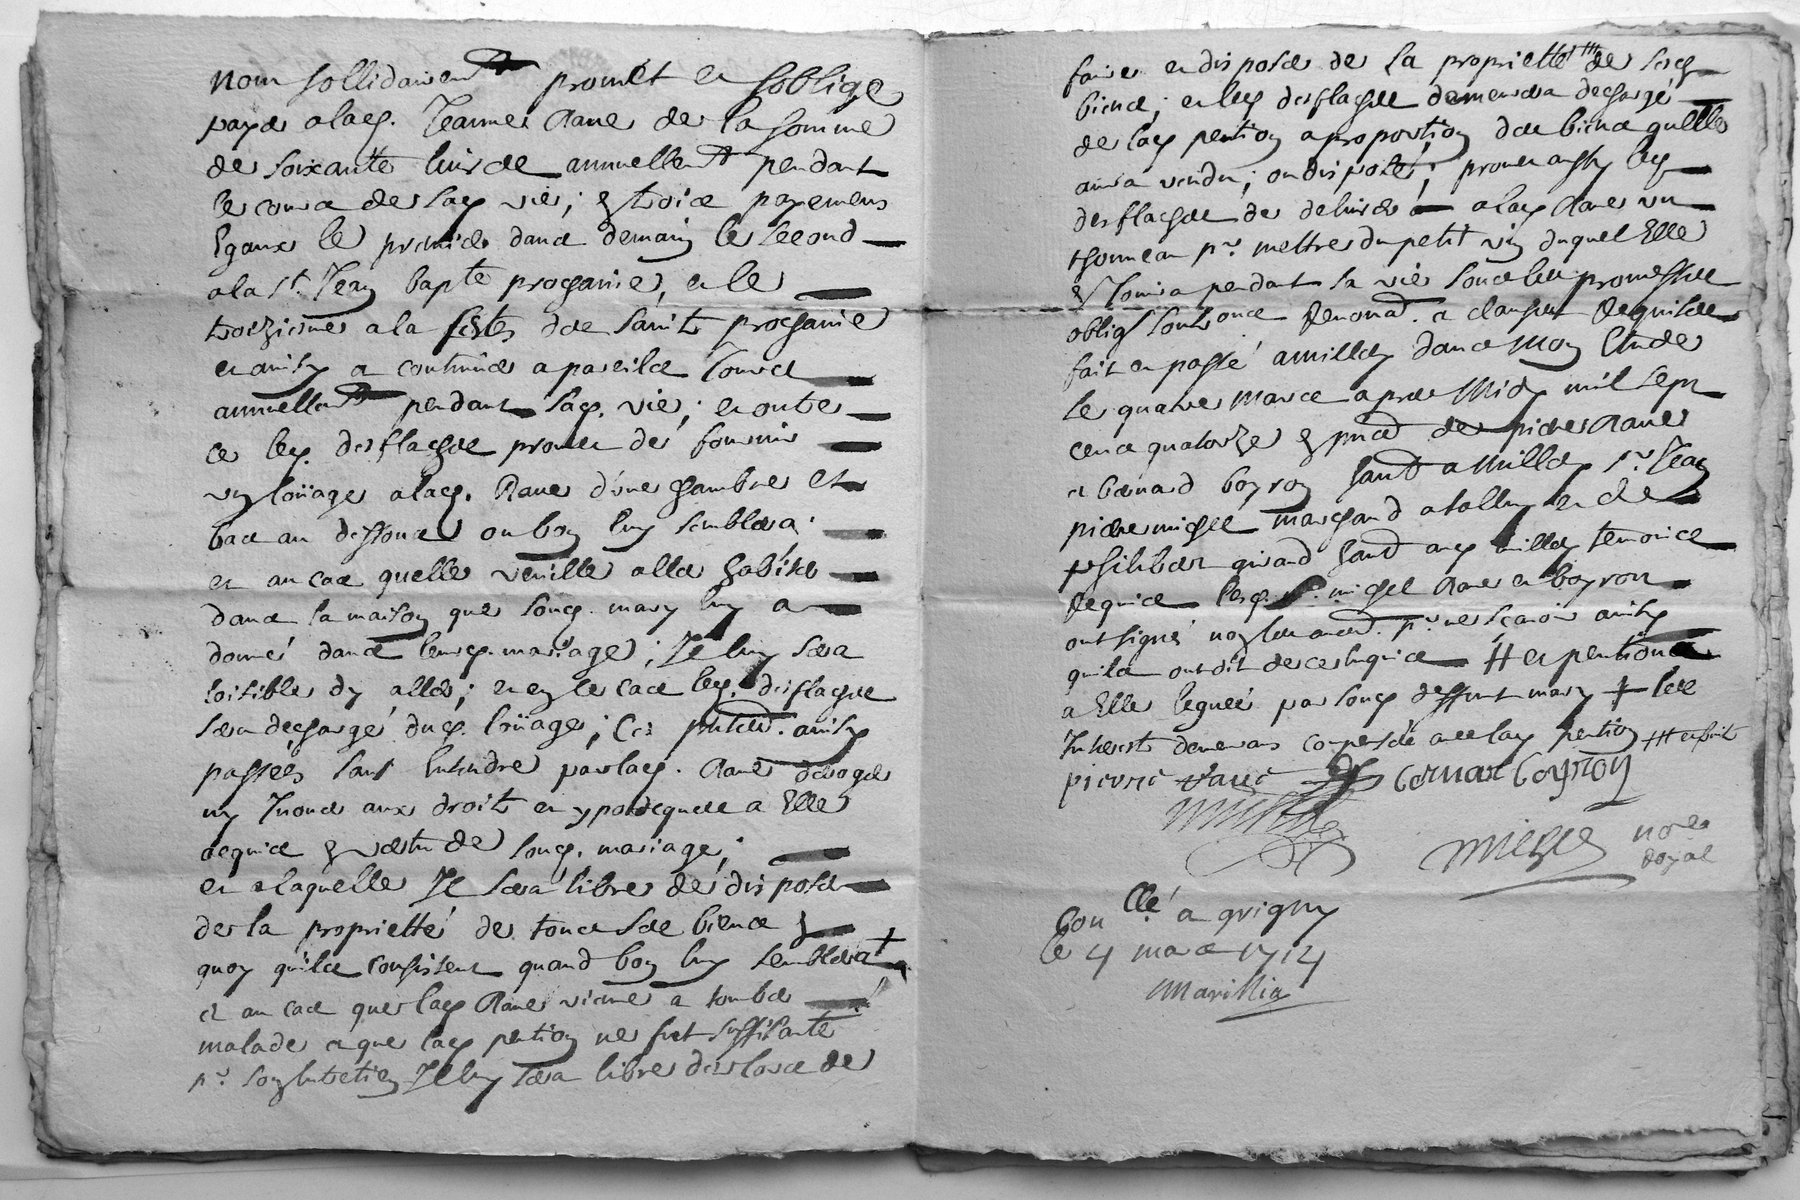 nom sollidairemt promet et soblige
payer a lad. Jeanne Rane de la somme
de soixante livres annuellemt pendant
le cours de sad. vie, en trois payemens
Egaux le premier dans demain le second
a la st. Jean bapte prochaine, et le
troizieme a la feste des saints prochaine
et ainsy a continuer a pareils Jours
annuellemt pendant sad. vie; et outre
ce led. desflaches promet de fournir
un loüage a lad. Rane d'une chambre et
bas au dessous ou bon luy semblera
et au cas quelle veuille aller habiter
dans la maison que soud. mary luy a
donné dans leurd. mariage, Il luy sera
loisible dy aller; et en ce cas led. desflaches
sera dechargé dud. loüage; Ces pntes ainsy
passées sans Entendre par lad. Rane deroger
ny Innover aux droits et ypotecques a Elle
acquis en vertu de soud. mariage;
et a laquelle Il sera libre de disposer
de la proprietté de tous ses biens en
quoy quils consistent quand bon luy semblera +
et au cas que lad. Rane vienne a tomber
malade et que lad. pention ne fut suffisante
pr. son Entretien Il luy sera libre des lors de
faire et disposer de la proprietté +++ de sesd.
biens; et led. desflaches demeurera dechargé
de lad. pention a proportion des biens quelle
aura vendu, ou disposé; promet aussy led.
desflaches de delivrer a lad. Rane un
thonneau pr. mettre du petit vin duquel Elle
Jouira pendant sa vie sous les promesses
oblig. soub. once Renonad. et clauses Requises
fait et passé a millery dans mon Etude
le quatre mars apres Midy mil sept
cens quatorze en pnce de pierre Rane
et bernard boyron hant a Millery sr. Jean
pierre michel marchand a talluy et de
philibert girard hant aud. millery temoins
Requis lesd. sr. michel Rane et boyron
ont signé non les autres pr. ne scavoir ainsy
quils ont dit de ce Enquis # et pentions
a Elle leguée par soud. deffunt mary + les
Interests demeurans compensés avec lad. pention +++ et fruits
pierre rane bernar boyron
michel
michel nore
Royal
Conllé a grigny
le 4 mars 1714
Marillia